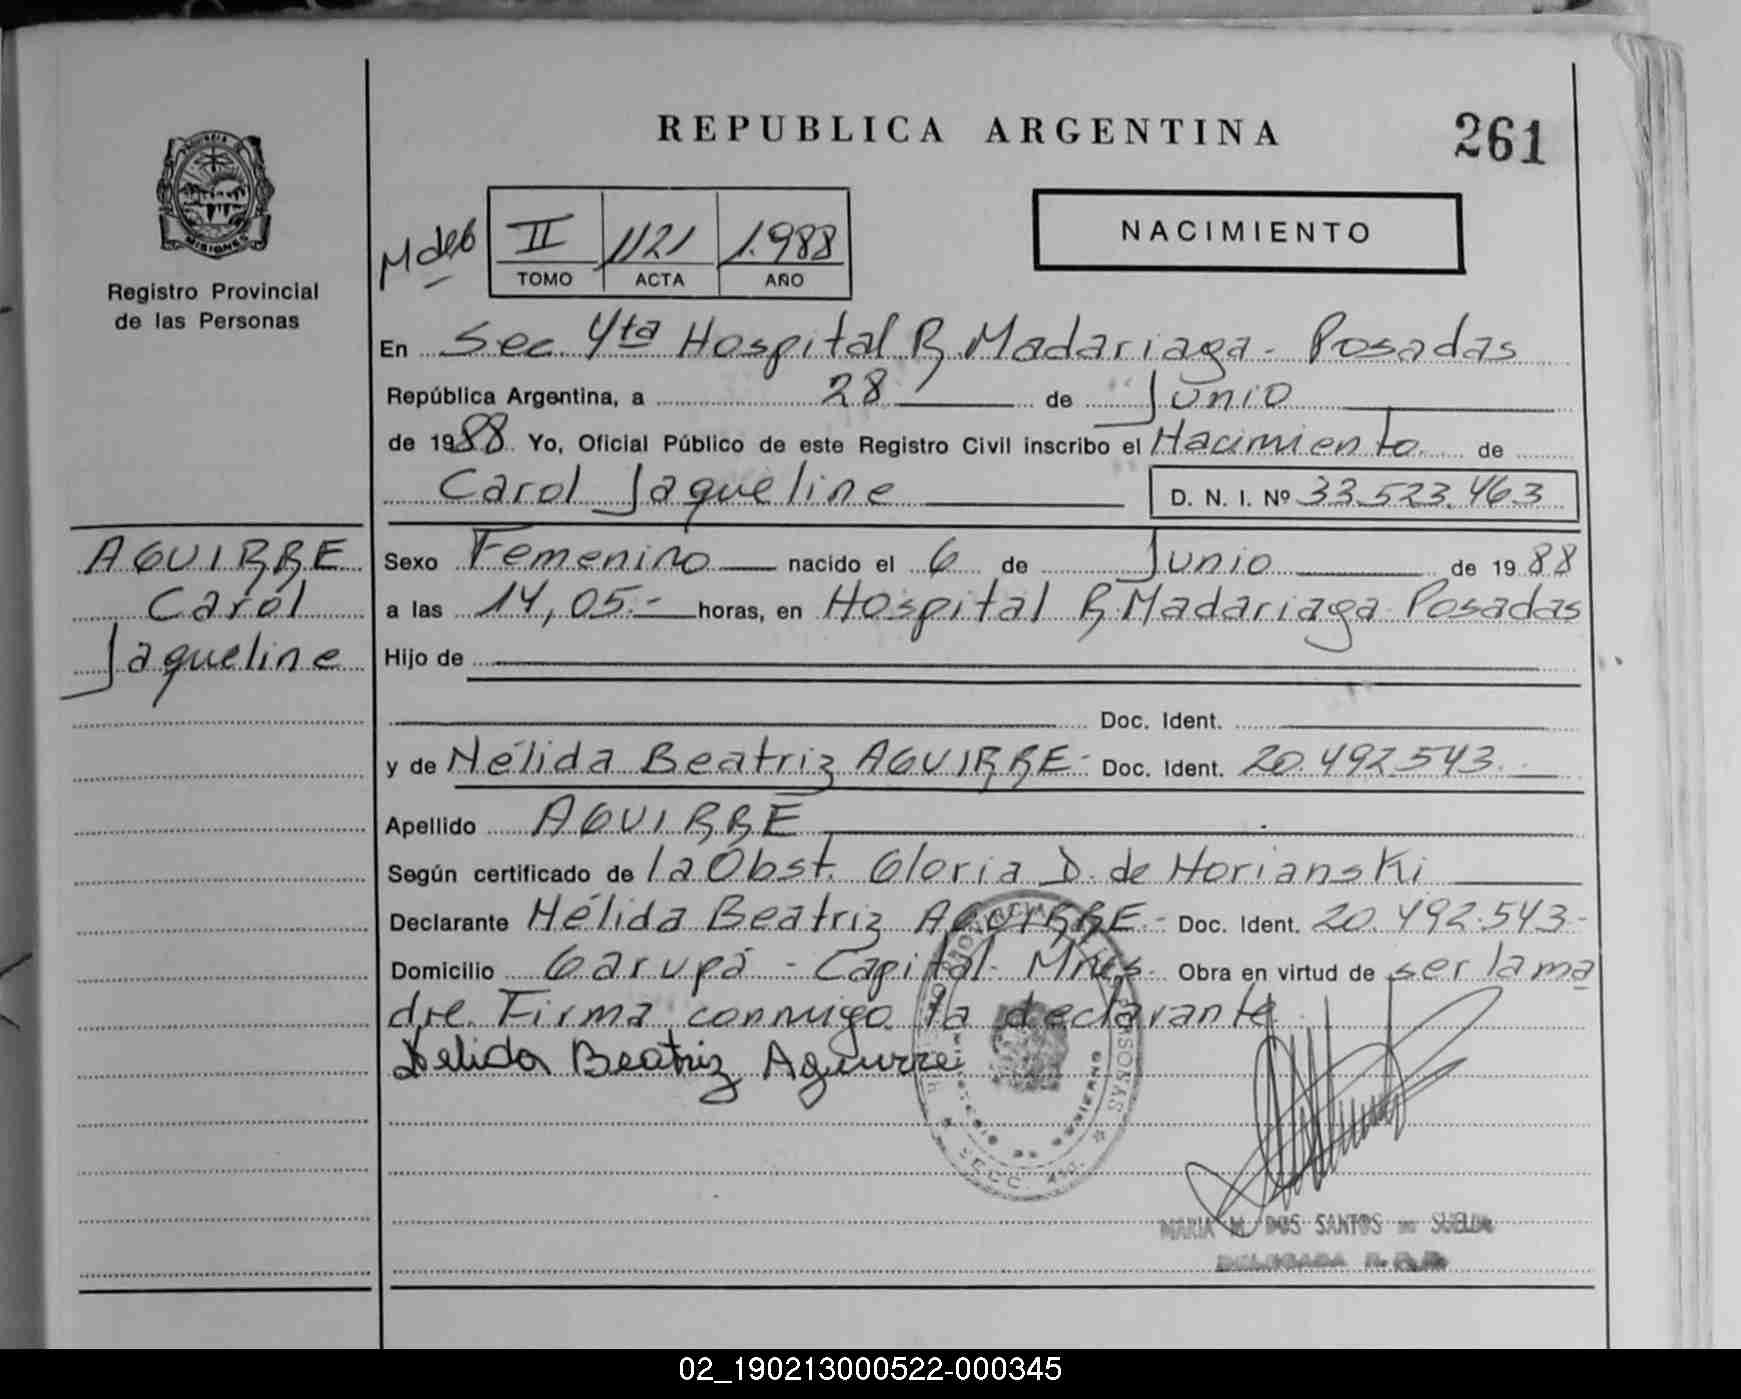 REPUBLICA ARGENTINA
261
NACIMIENTO
II 1121 1.988
TOMO ACTA AÑO
MISIONES
Registro Provincial
de las Personas
En Sec 4ta Hospital R Madariaga - Posadas
República Argentina, a 28 de Junio
de 1988 Yo, Oficial Público de este Registro Civil inscribo el Nacimiento de
Carol Jaqueline D. N. I. Nº 33.523.463
AGUIRRE
Carol
Jaqueline
Sexo Femenino nacido el 6 de Junio de 1988
a las 14,05.- horas, en Hospital R Madariaga Posadas
Hijo de
Doc. Ident.
y de Nélida Beatriz AGUIRRE - Doc. Ident. 20.492.543.
Apellido AGUIRRE
Según certificado de la Obst. Gloria D. de Horianski
Declarante Nélida Beatriz AGUIRRE.- Doc. Ident. 20.492.543-
Domicilio Garupá - Capital - Mnes. Obra en virtud de ser la ma
dre. Firma conmigo la declarante
Nelida Beatriz Aguirre
MARIA M. DOS SANTOS DE
DELEGADA
02_190213000522-000345